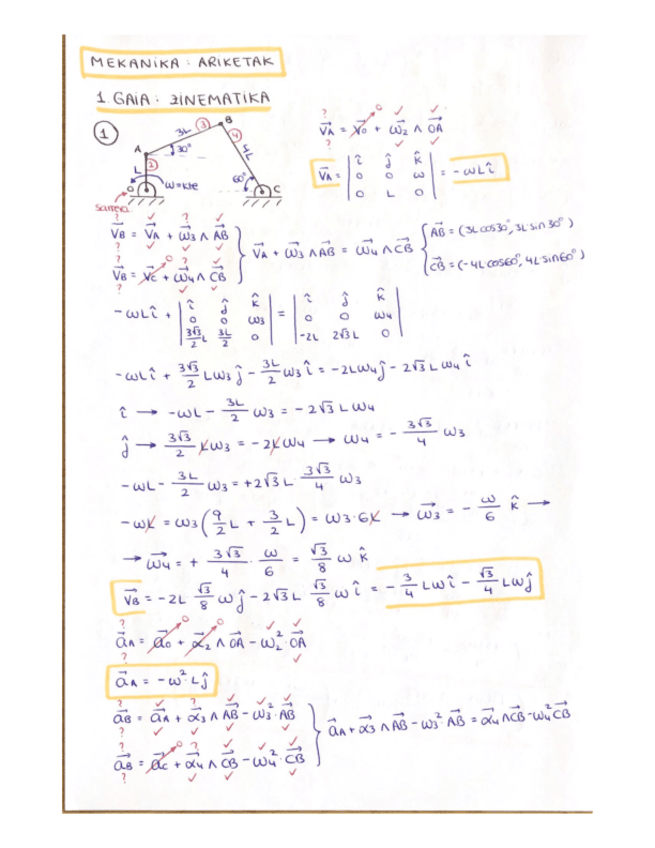 MEKANIKA : ARIKETAK
1. GAIA : ZINEMATIKA
1
A 3L 3 B 4 4L 30° L 2 O ω=kte 60° C
Sarrera
? v⃗A = v⃗o + ω⃗2 ∧ OA⃗
v⃗A = | î ĵ k̂ ; 0 0 ω ; 0 L 0 | = - ωL î
v⃗B = v⃗A + ω⃗3 ∧ AB⃗
v⃗B = v⃗c + ω⃗4 ∧ CB⃗
} v⃗A + ω⃗3 ∧ AB⃗ = ω⃗4 ∧ CB⃗ { AB⃗ = (3L cos30°, 3L sin 30°)
CB⃗ = (-4L cos60°, 4L sin60°)
-ωL î + | î ĵ k̂ ; 0 0 ω3 ; 3√3/2 L 3L/2 0 | = | î ĵ k̂ ; 0 0 ω4 ; -2L 2√3 L 0 |
-ωL î + 3√3/2 Lω3 ĵ - 3L/2 ω3 î = -2Lω4 ĵ - 2√3 L ω4 î
î → -ωL - 3L/2 ω3 = -2√3 L ω4
ĵ → 3√3/2 L ω3 = -2L ω4 → ω4 = - 3√3/4 ω3
-ωL - 3L/2 ω3 = +2√3 L · 3√3/4 ω3
-ωL = ω3 (9/2 L + 3/2 L) = ω3·6L → ω⃗3 = - ω/6 k̂ →
→ ω⃗4 = + 3√3/4 · ω/6 = √3/8 ω k̂
v⃗B = -2L √3/8 ω ĵ - 2√3 L √3/8 ω î = - 3/4 Lω î - √3/4 Lω ĵ
a⃗A = a⃗o + α⃗2 ∧ OA⃗ - ω2² · OA⃗
a⃗A = -ω² L ĵ
a⃗B = a⃗A + α⃗3 ∧ AB⃗ - ω3² · AB⃗
a⃗B = a⃗c + α⃗4 ∧ CB⃗ - ω4² · CB⃗
} a⃗A + α⃗3 ∧ AB⃗ - ω3² · AB⃗ = α⃗4 ∧ CB⃗ - ω4² CB⃗